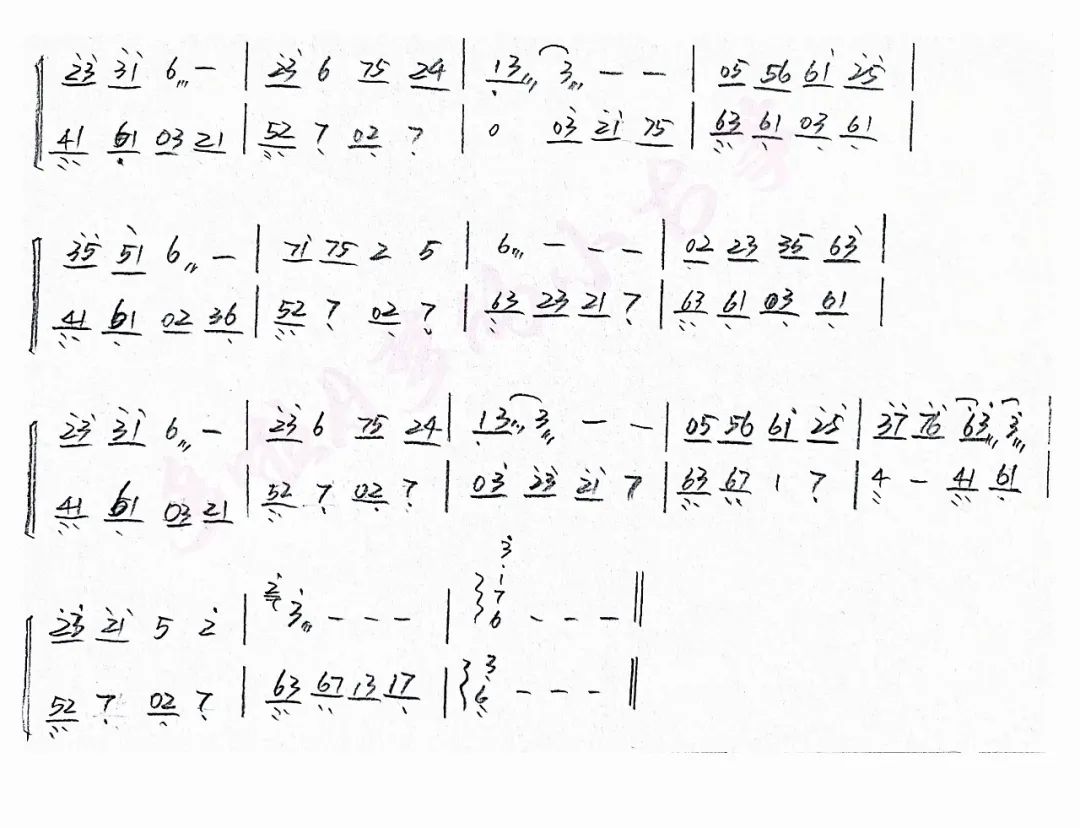 23 31 6 - | 23 6 75 24 | 13 3 - - | 05 56 61 25 |
41 61 03 21 | 52 7 02 7 | 0 03 21 75 | 63 61 03 61 |
35 51 6 - | 71 75 2 5 | 6 - - - | 02 23 35 63 |
41 61 02 36 | 52 7 02 7 | 63 23 21 7 | 63 61 03 61 |
23 31 6 - | 23 6 75 24 | 13 3 - - | 05 56 61 25 | 37 76 63 3 |
41 61 03 21 | 52 7 02 7 | 03 23 21 7 | 63 67 1 7 | 4 - 41 61 |
23 21 5 2 | 3 - - - | 3 1 7 6 - - - ||
52 7 02 7 | 63 67 13 17 | 3 6 - - - ||